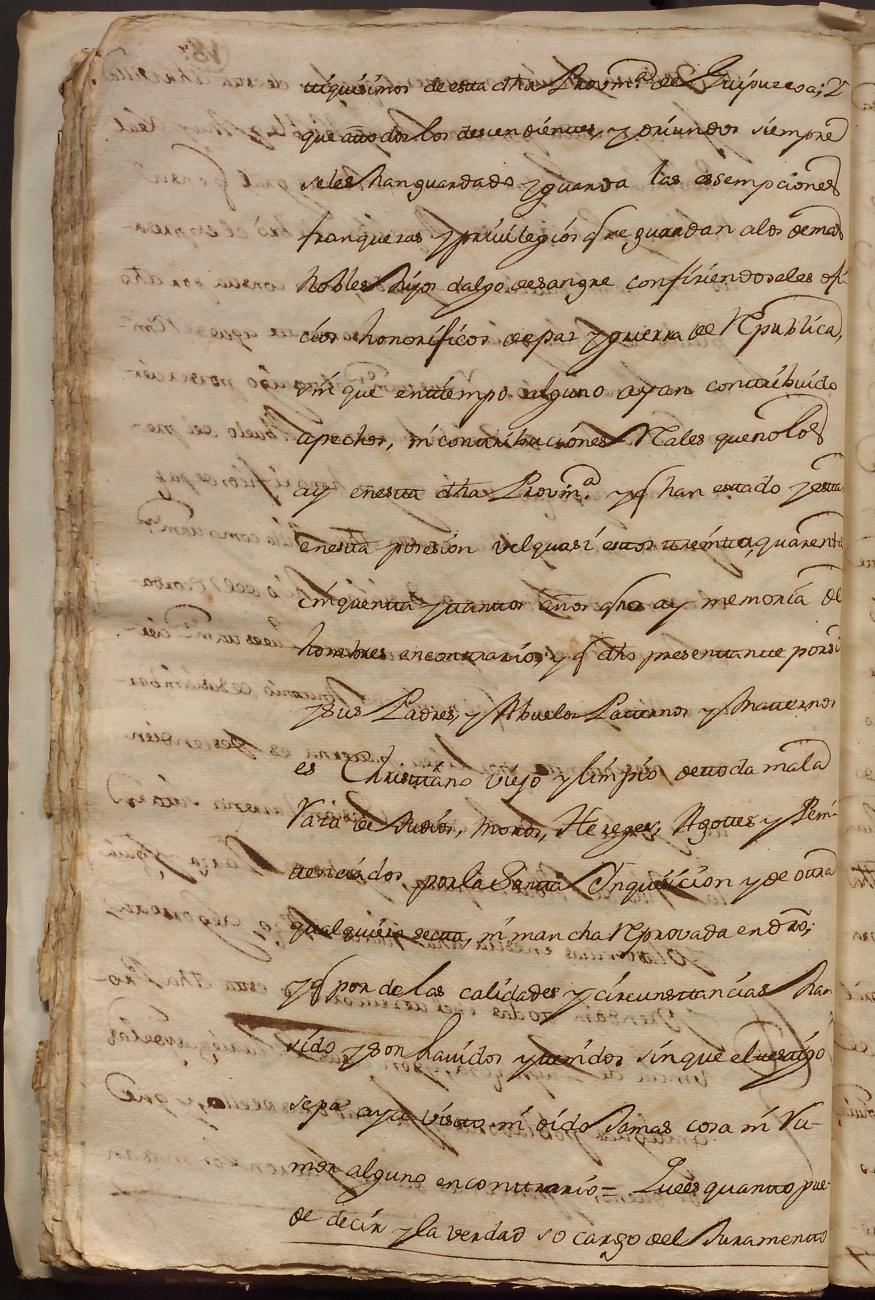 tiquisimos de esta dha Provinª de Guipuzcoa; Y
que a todos los descendientes, y oriundos siempre
se les han guardado y guarda las essempciones
franquezas y priuilegios q se guardan a los demas
Nobles hijos dalgo de sangre confiriendoseles ofi
cios honorificos de paz y guerra de Republica,
sin que en tiempo alguno ayan contribuido
a pechos, ni contribuciones Rales que no los
ay en esta dha Provinª y q han estado y esta
en esta posesion vel quasi estos treinta, quarenta
cinquenta y tantos años q no ay memoria de
hombres en contrario; y q dho presentante por si
y sus Padres, y Abuelos Paternos y Maternos
es Christiano viejo y limpio de toda mala
Raza de Judios, moros, Hereges, Agotes y Peni-
tenciados, por la Santa Inquisicion y de otra
qualquiera secta, ni mancha Reprovada en dro;
y q por de las calidades y circunstancias han
sido y son hauidos y tenidos sin que el testigo
sepa aya visto, ni oido Jamas cosa ni Ru-
mor alguno en contrario = Que es quanto pue-
de decir y la verdad so cargo del Juramento